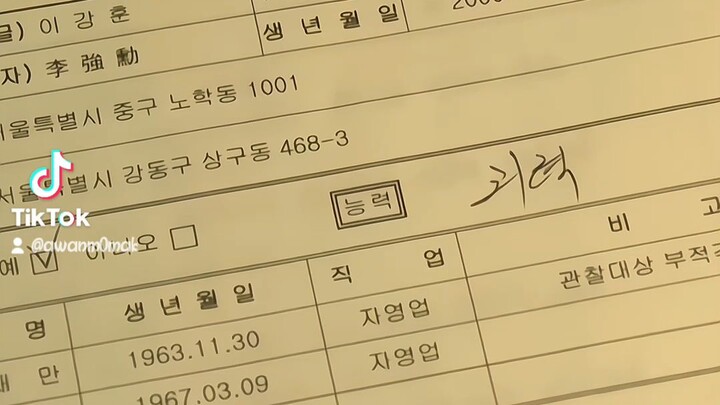 글) 이 강 훈
생 년 월 일
자) 李 強 勳
서울특별시 중구 노학동 1001
서울특별시 강동구 상구동 468-3
능력 괴력
TikTok
@awanm0mok
예 아니오
명 생 년 월 일 직 업 비 고
만 1963.11.30 자영업 관찰대상 부적
1967.03.09 자영업